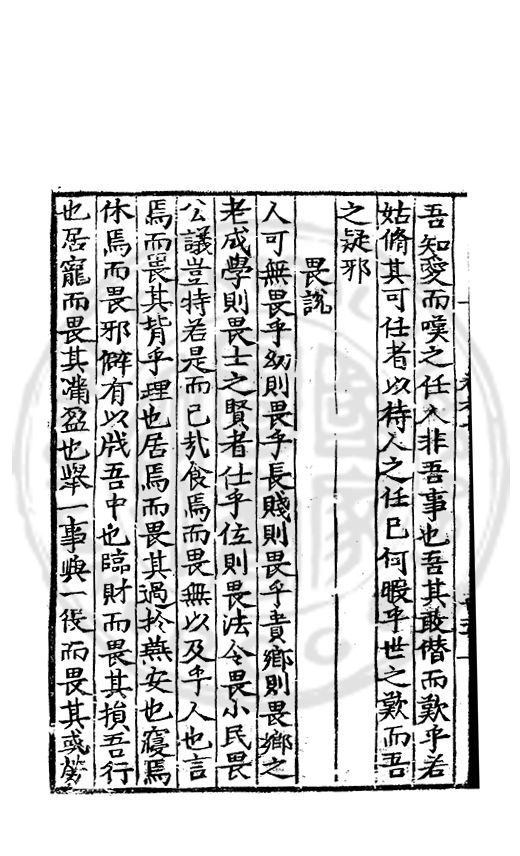 吾知愛而嘆之任人非吾事也吾其敢僣而歎乎若
姑脩其可任者以待人之任已何暇乎世之歎而吾
之疑邪
畏說
人可無畏乎幼則畏乎長賤則畏乎貴鄉則畏鄉之
老成學則畏士之賢者仕乎位則畏法令畏小民畏
公議豈特若是而已㢤食焉而畏無以及乎人也言
焉而畏其背乎理也居焉而畏其過於燕安也寢焉
休焉而畏邪僻有以戕吾中也臨財而畏其損吾行
也居寵而畏其滿盈也舉一事興一役而畏其或勞